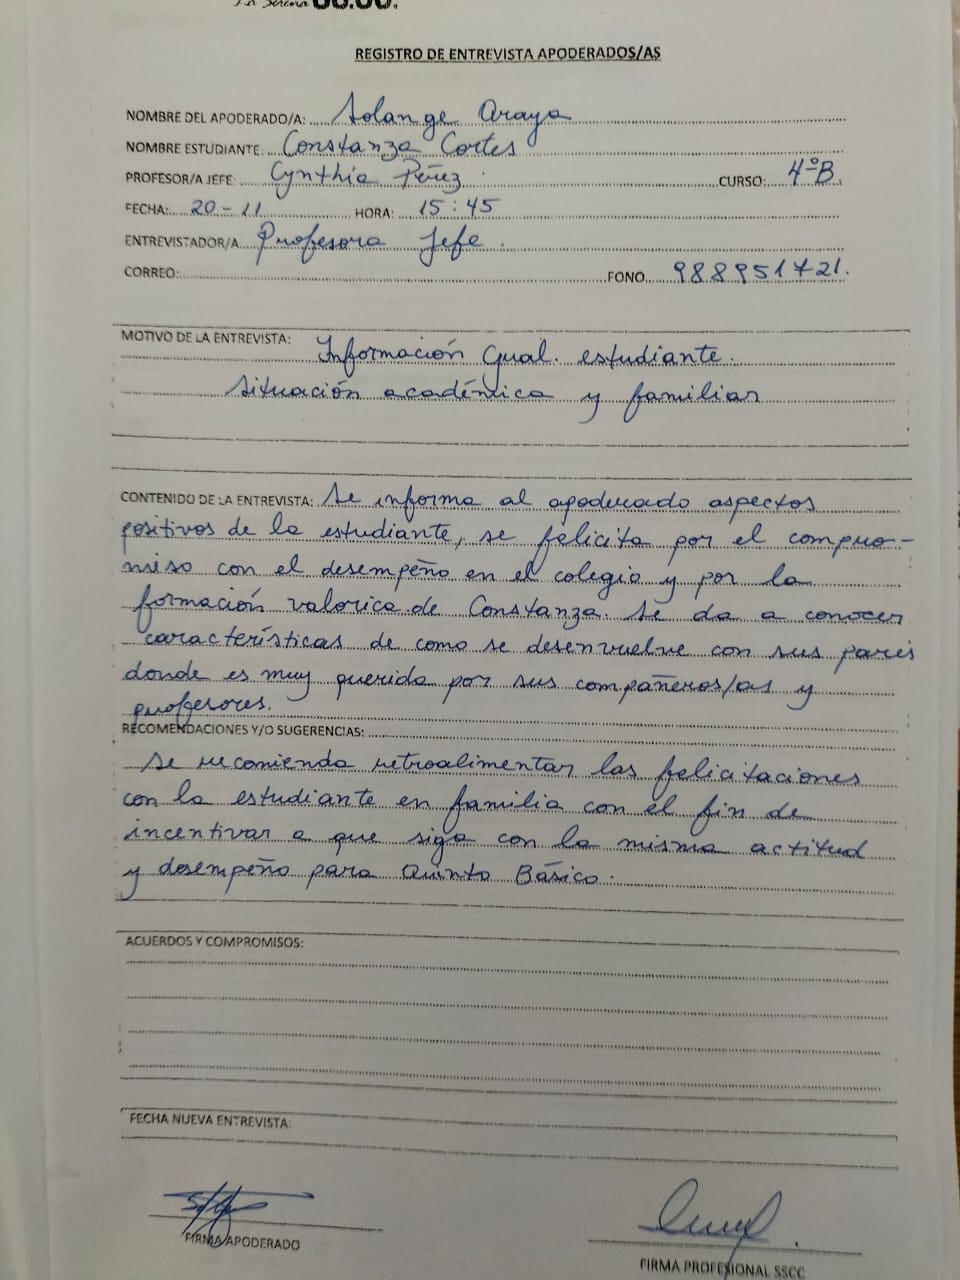 La Serena SS.CC.
REGISTRO DE ENTREVISTA APODERADOS/AS
NOMBRE DEL APODERADO/A: Solange Araya
NOMBRE ESTUDIANTE: Constanza Cortes
PROFESOR/A JEFE: Cynthia Pérez CURSO: 4ºB
FECHA: 20-11 HORA: 15:45
ENTREVISTADOR/A Profesora Jefe.
CORREO: FONO 988951721.
MOTIVO DE LA ENTREVISTA: Información Gual. estudiante.
Situación académica y familiar
CONTENIDO DE LA ENTREVISTA: Se informa al apoderado aspectos
positivos de la estudiante, se felicita por el compro-
miso con el desempeño en el colegio y por la
formación valorica de Constanza. Se da a conocer
características de como se desenvuelve con sus pares
donde es muy querida por sus compañeros/as y
profesores.
RECOMENDACIONES Y/O SUGERENCIAS:
Se recomienda retroalimentar las felicitaciones
con la estudiante en familia con el fin de
incentivar a que siga con la misma actitud
y desempeño para Quinto Básico.
ACUERDOS Y COMPROMISOS:
FECHA NUEVA ENTREVISTA:
FIRMA APODERADO
FIRMA PROFESIONAL SSCC